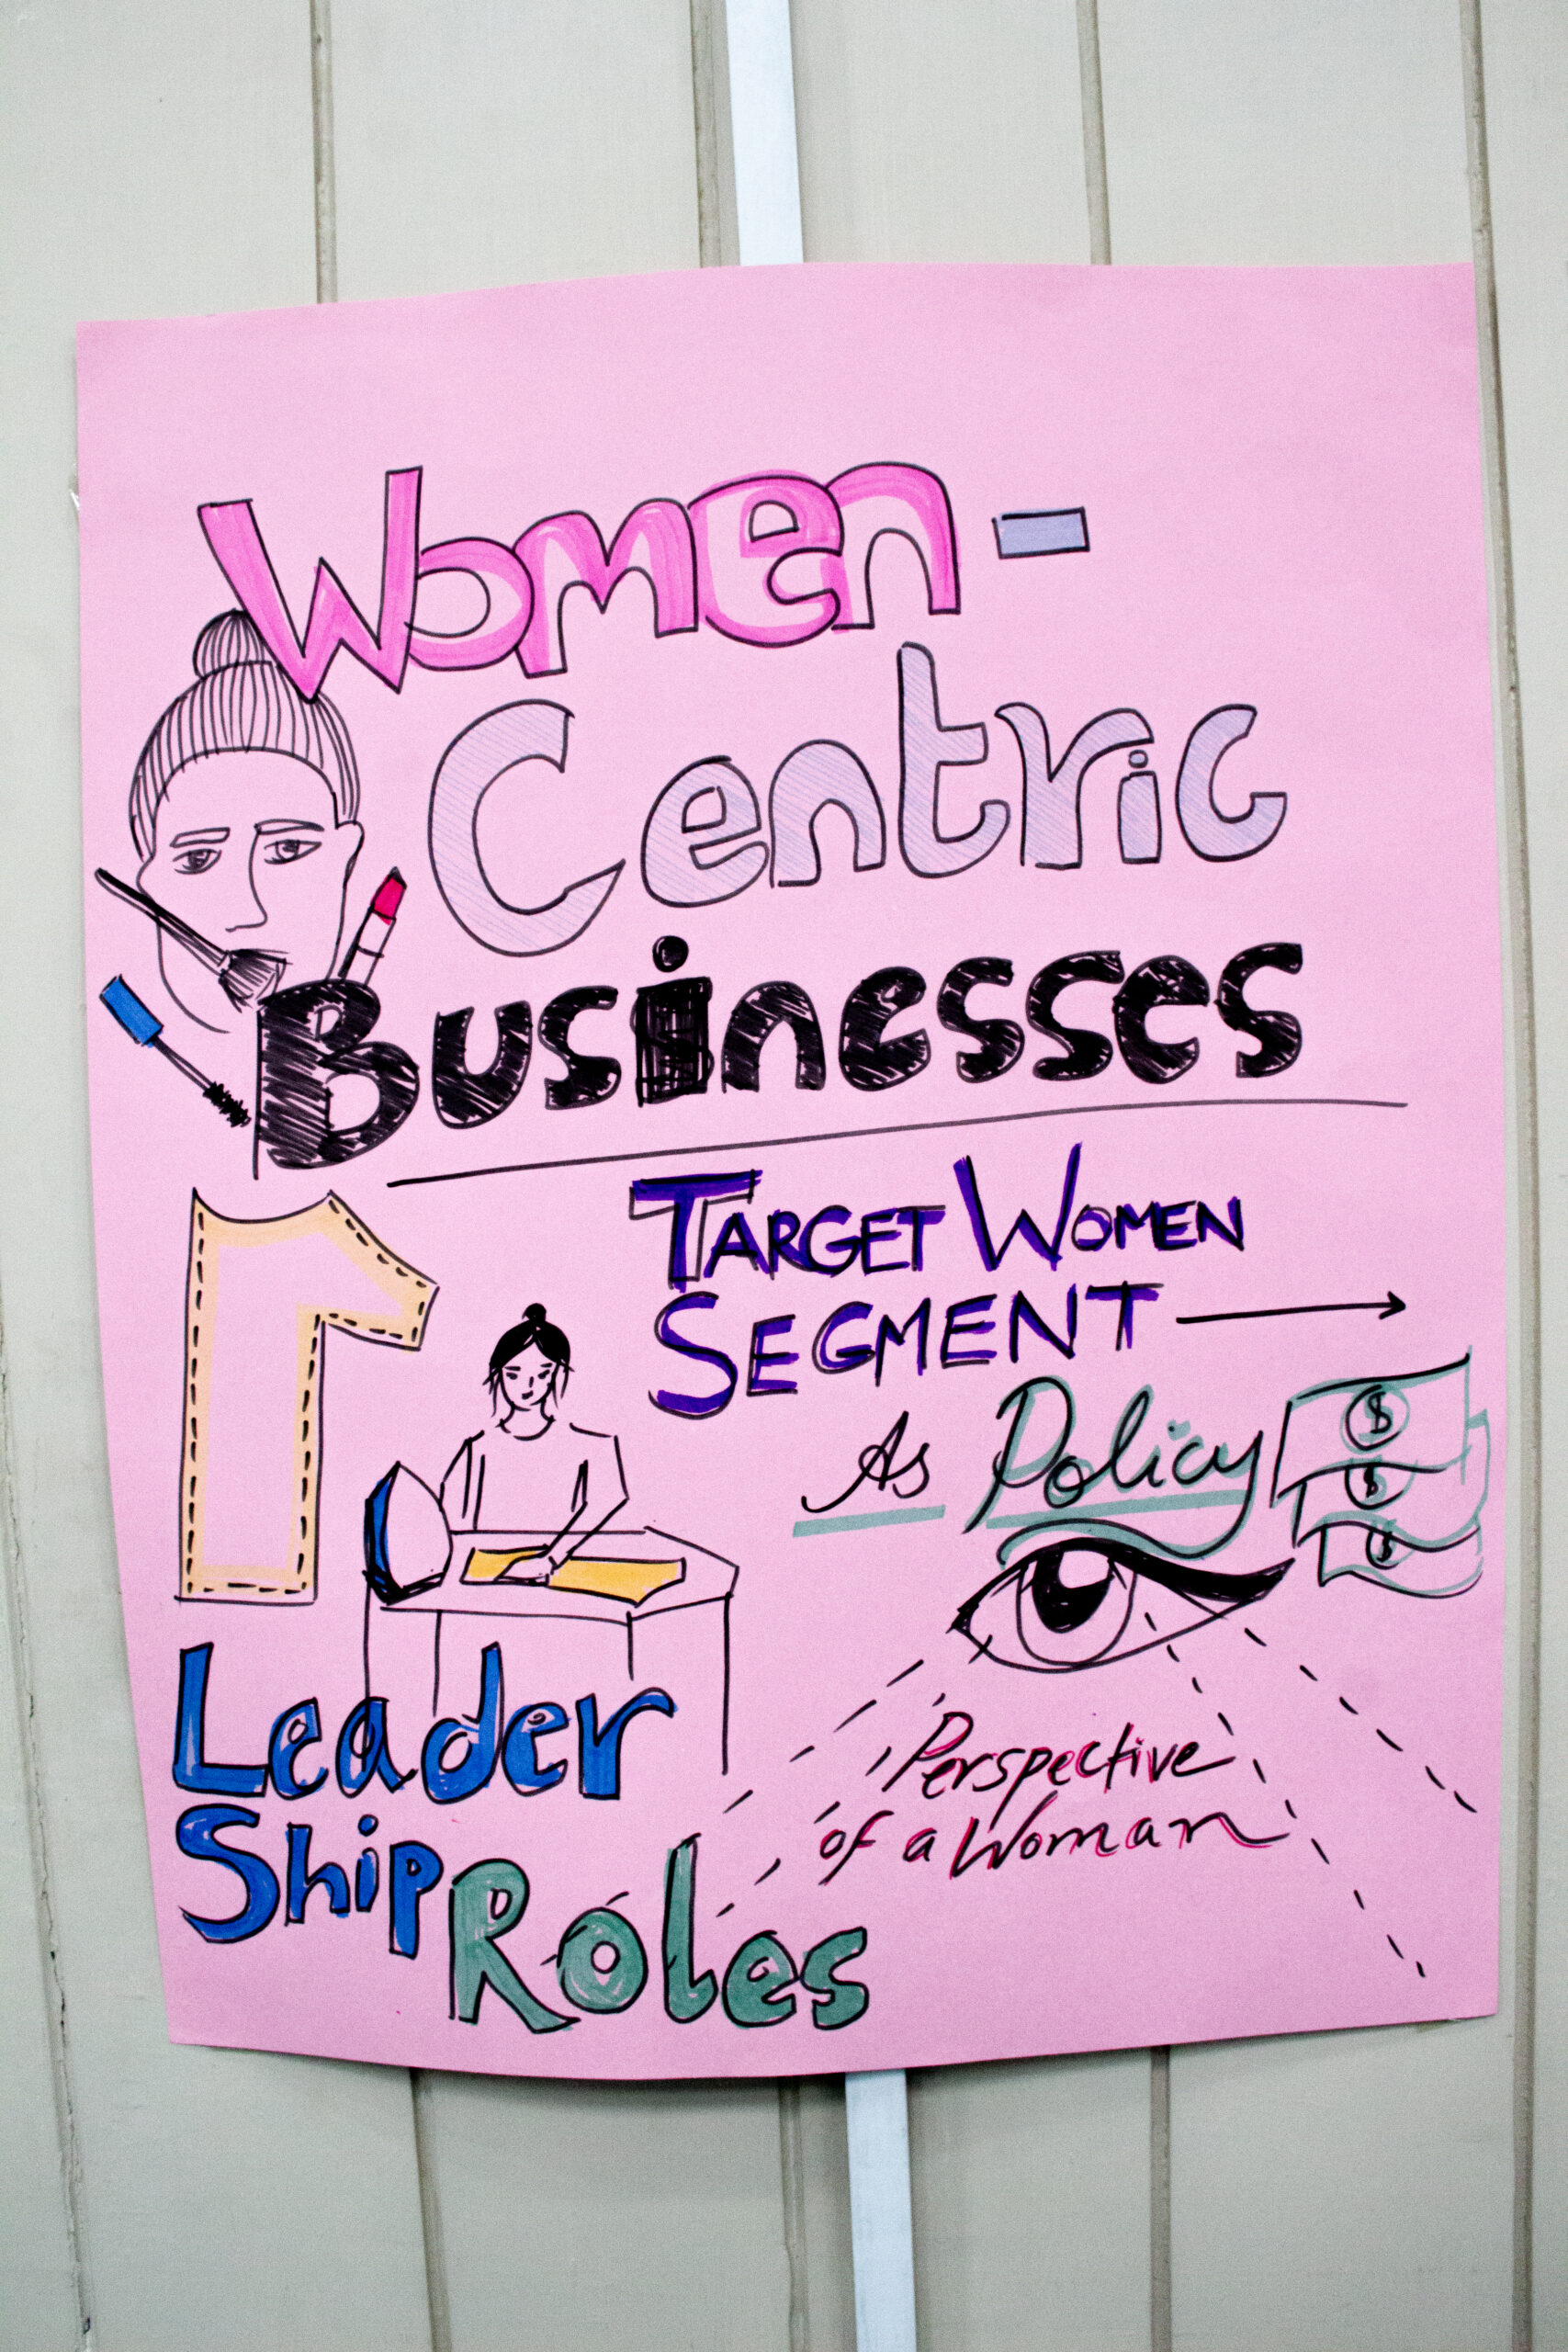 Women-
Centric
Businesses
TARGET WOMEN
SEGMENT
As Policy
$
$
$
Perspective
of a Woman
Leader
Ship
Roles